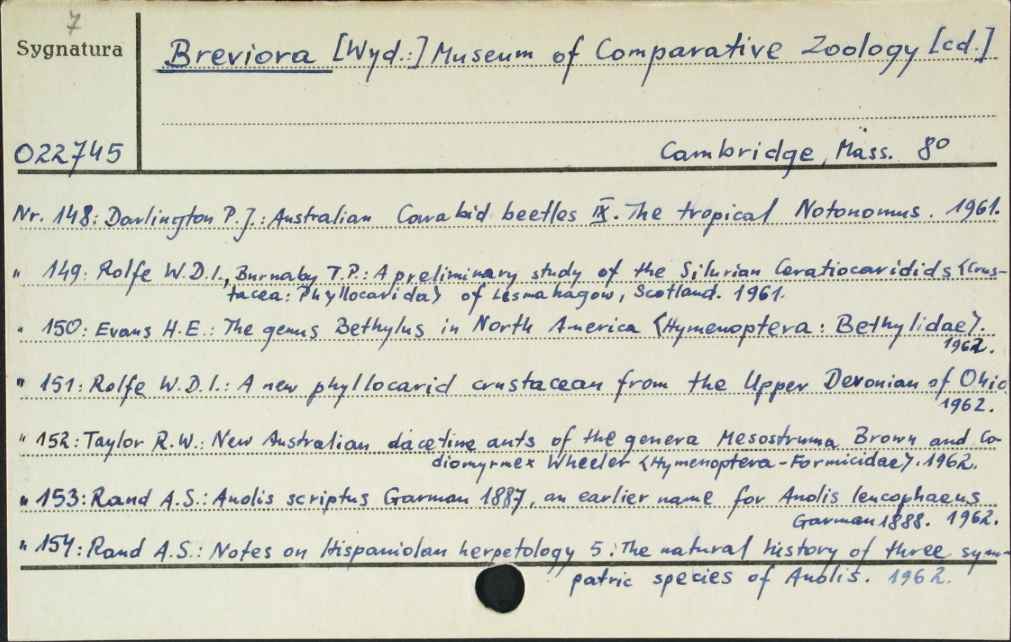 7
Sygnatura
Breviora [Wyd.:] Museum of Comparative Zoology [cd.]
022745
Cambridge, Mass. 8°
Nr. 148: Darlington P.J.: Australian Carabid beetles IX. The tropical Notonomus. 1961.
" 149: Rolfe W.D.I., Burnaby T.P.: A preliminary study of the Silurian Ceratiocaridids <Crus-
tacea: Phyllocarida> of Lesmahagow, Scotland. 1961.
" 150: Evans H.E.: The genus Bethylus in North America <Hymenoptera: Bethylidae>.
1962.
" 151: Rolfe W.D.I.: A new phyllocarid crustacean from the Upper Devonian of Ohio
1962.
" 152: Taylor R.W.: New Australian dacetine ants of the genera Mesostruma Brown and Co-
diomyrmex Wheeler <Hymenoptera-Formicidae>. 1962.
" 153: Rand A.S.: Anolis scriptus Garman 1887, an earlier name for Anolis leucophaeus
Garman 1888. 1962.
" 154: Rand A.S.: Notes on Hispaniolan herpetology 5: The natural history of three sym-
patric species of Anolis. 1962.